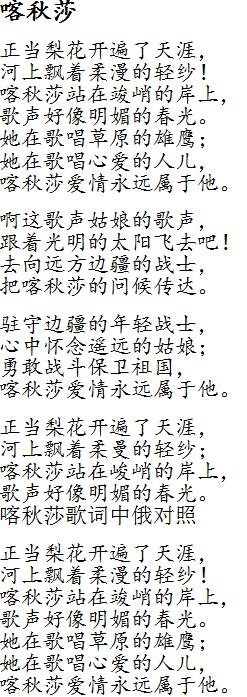 喀秋莎
正当梨花开遍了天涯，
河上飘着柔漫的轻纱！
喀秋莎站在竣峭的岸上，
歌声好像明媚的春光。
她在歌唱草原的雄鹰；
她在歌唱心爱的人儿，
喀秋莎爱情永远属于他。
啊这歌声姑娘的歌声，
跟着光明的太阳飞去吧！
去向远方边疆的战士，
把喀秋莎的问候传达。
驻守边疆的年轻战士，
心中怀念遥远的姑娘；
勇敢战斗保卫祖国，
喀秋莎爱情永远属于他。
正当梨花开遍了天涯，
河上飘着柔曼的轻纱；
喀秋莎站在峻峭的岸上，
歌声好像明媚的春光。
喀秋莎歌词中俄对照
正当梨花开遍了天涯，
河上飘着柔漫的轻纱！
喀秋莎站在竣峭的岸上，
歌声好像明媚的春光。
她在歌唱草原的雄鹰；
她在歌唱心爱的人儿，
喀秋莎爱情永远属于他。